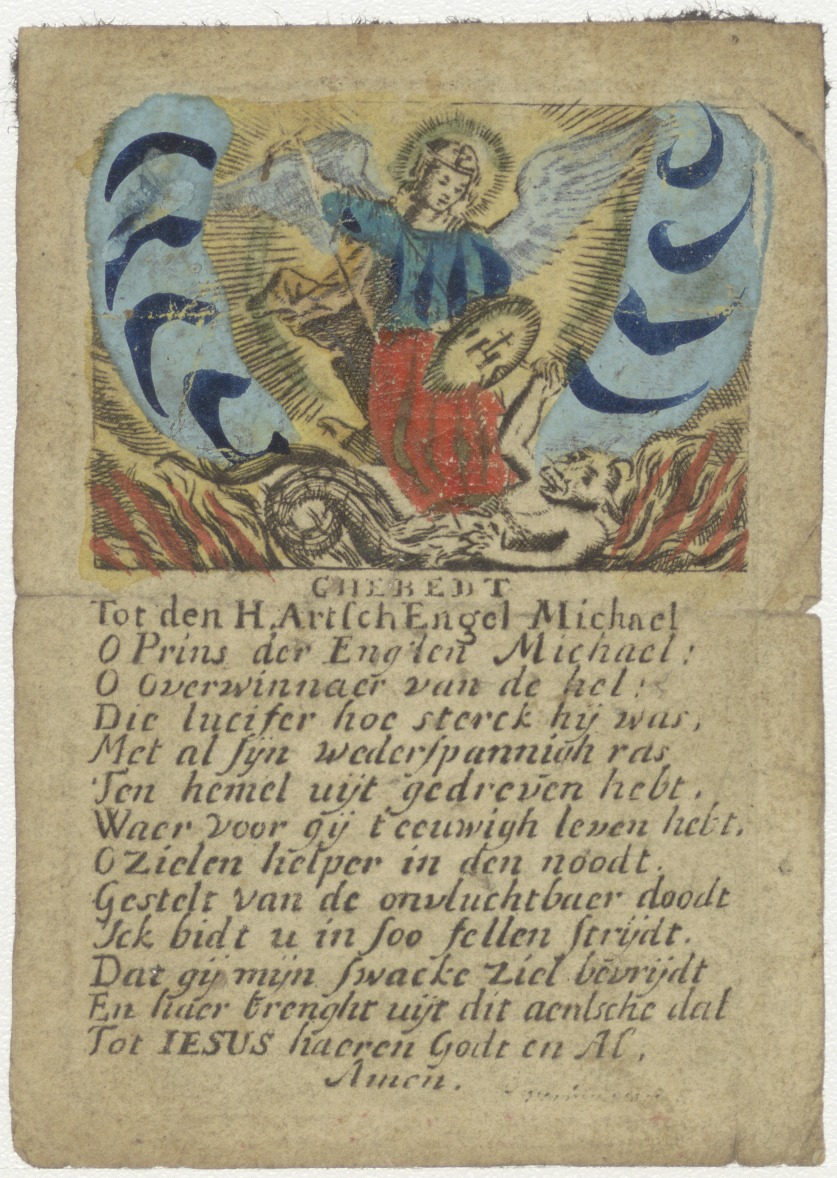 GHEBEDT
Tot den H. ArtſchEngel Michael
O Prins der Eng'len Michael:
O Overwinnaer van de hel:
Die lucifer hoe sterck hij was,
Met al ſijn wederſpannigh ras
Ten hemel uijt gedreven hebt.
Waer voor gij t'eeuwigh leven hebt.
O zielen helper in den noodt.
Gestelt van de onvluchtbaer doodt
Ick bidt u in ſoo fellen ſtrijdt.
Dat gij mijn ſwacke ziel bevrijdt
En haer brenght uijt dit aerdsche dal
Tot IESUS haeren Godt en Al,
Amen.